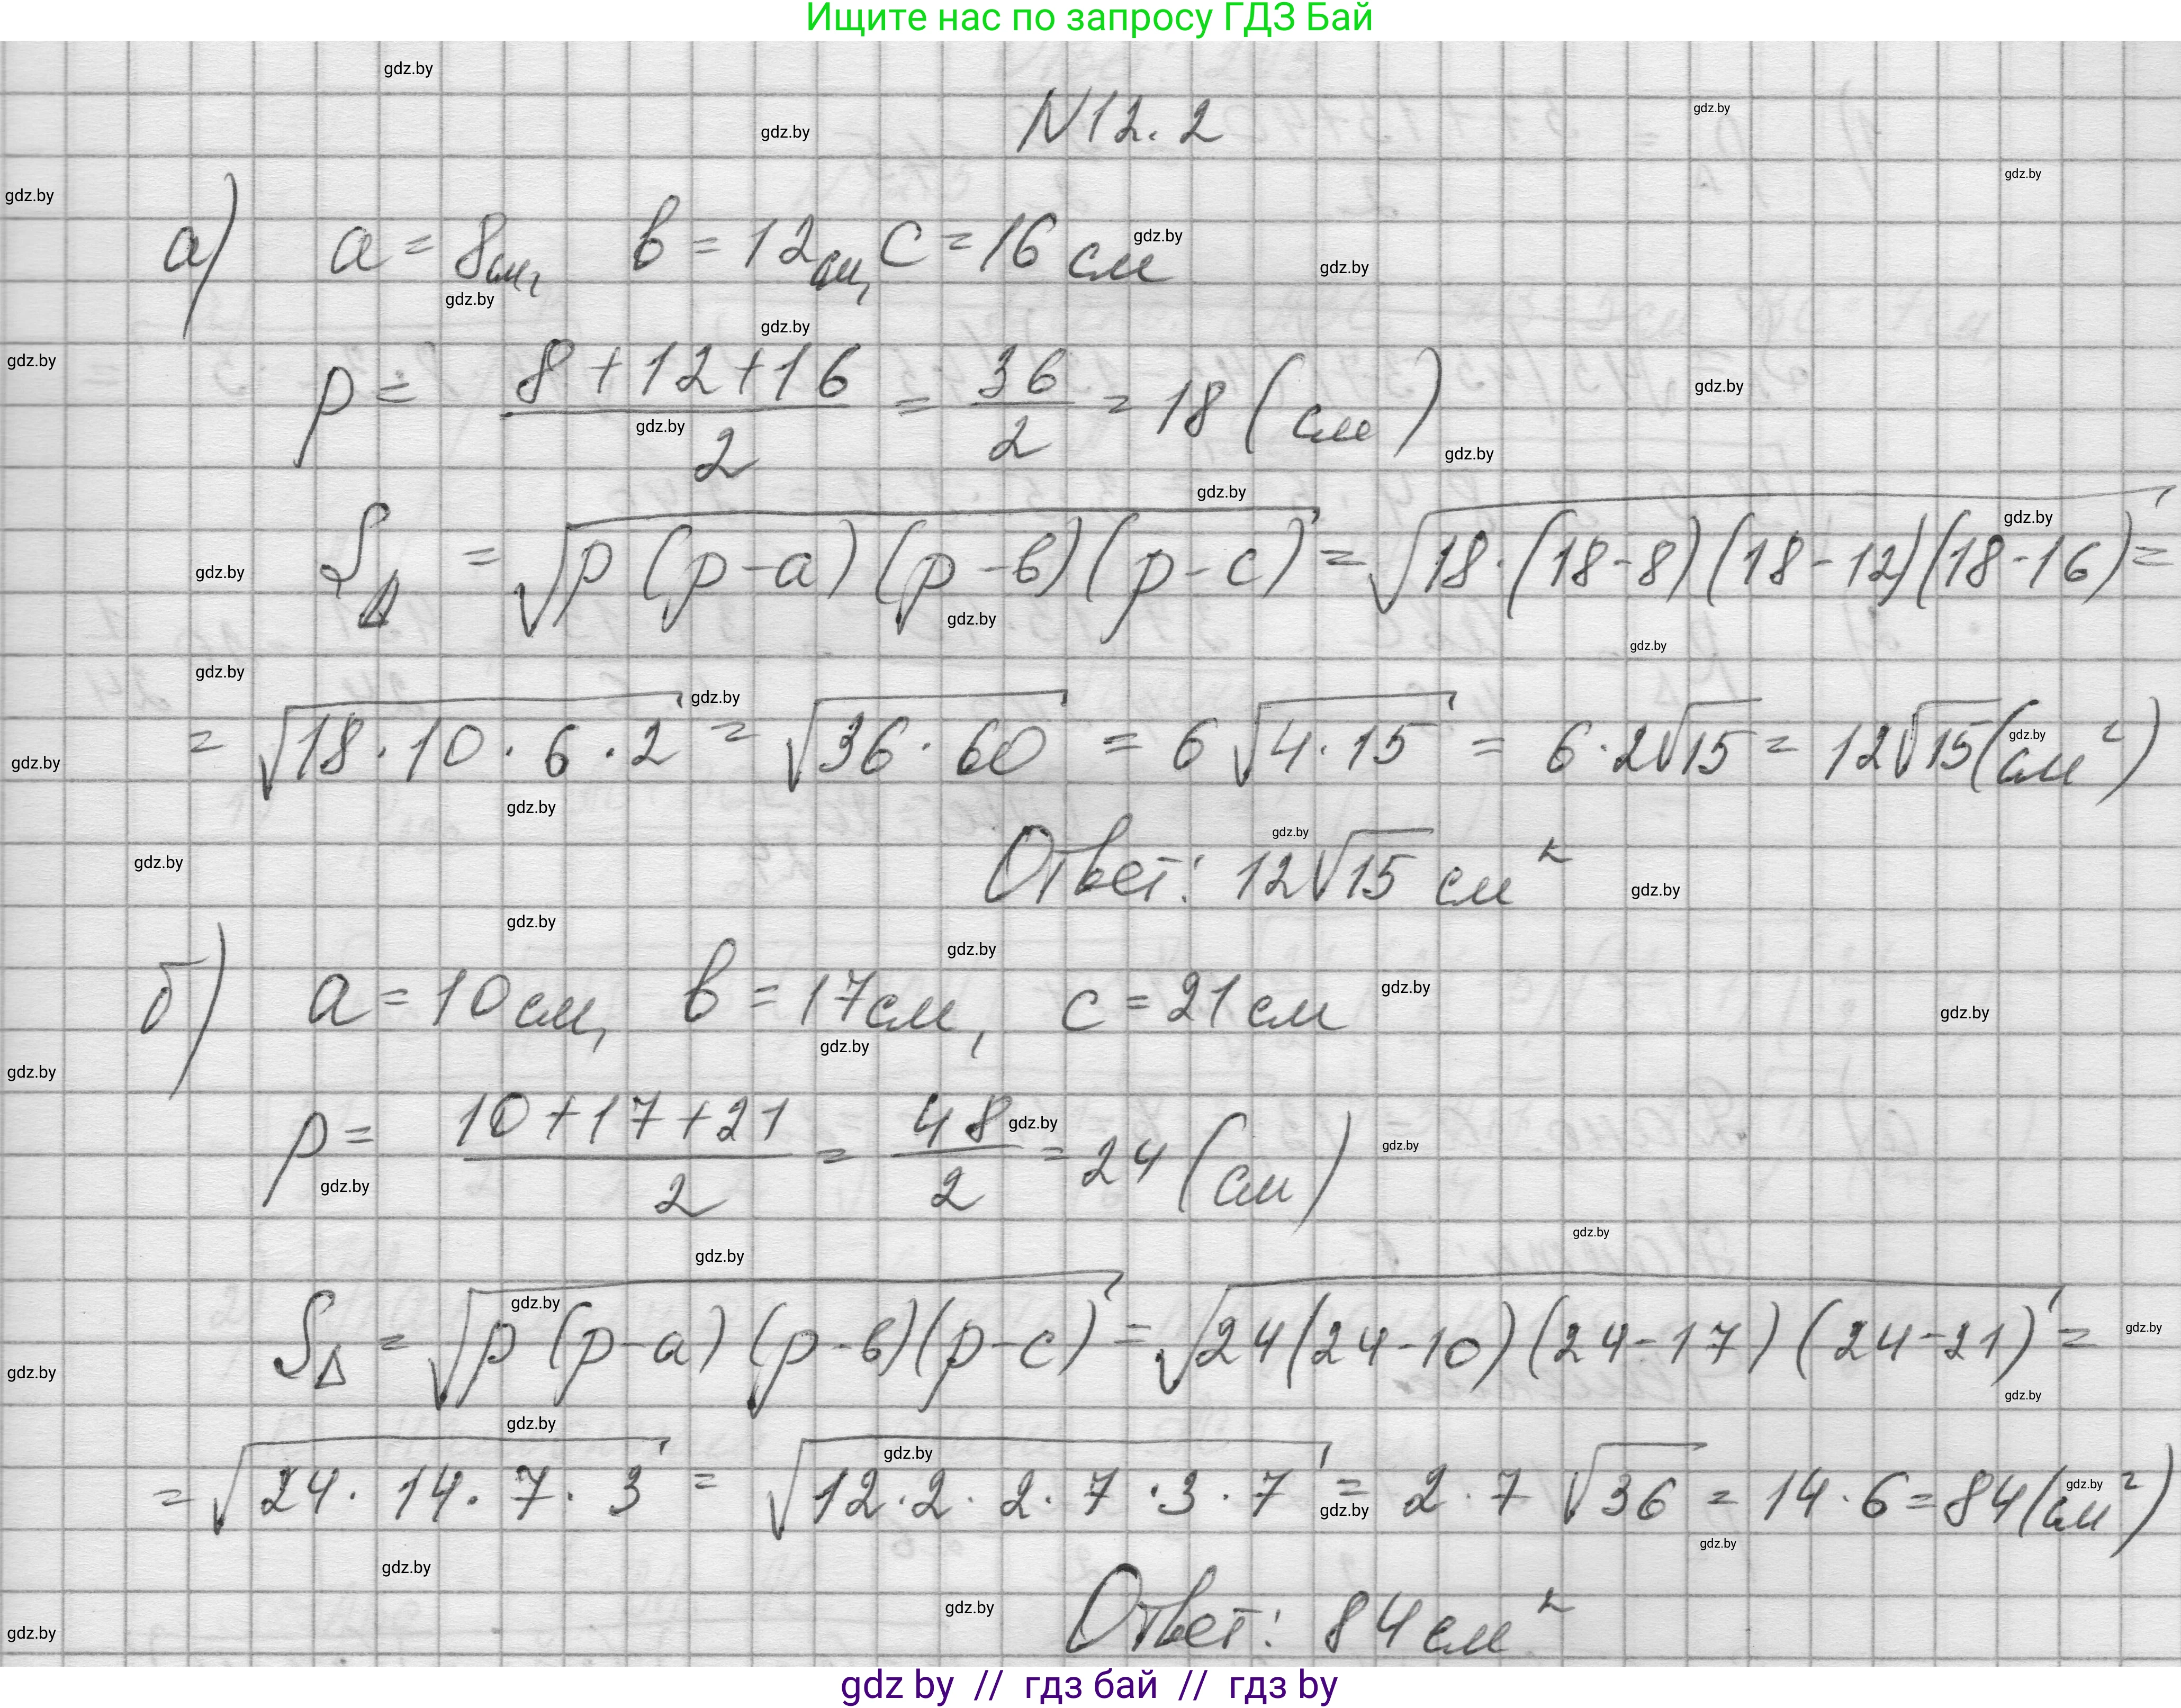 Ищите нас по запросу ГДЗ Бай
N12.2
а) a = 8см, в = 12см, c = 16 см
p = (8+12+16)/2 = 36/2 = 18 (см)
S△ = √(p(p-a)(p-в)(p-c)) = √(18·(18-8)(18-12)(18-16)) =
= √(18·10·6·2) = √(36·60) = 6√(4·15) = 6·2√15 = 12√15 (см²)
Ответ: 12√15 см²
б) a = 10см, в = 17см, c = 21см
p = (10+17+21)/2 = 48/2 = 24 (см)
S△ = √(p(p-a)(p-в)(p-c)) = √(24(24-10)(24-17)(24-21)) =
= √(24·14·7·3) = √(12·2·2·7·3·7) = 2·7√36 = 14·6 = 84 (см²)
Ответ: 84 см²
gdz by // гдз бай // гдз by